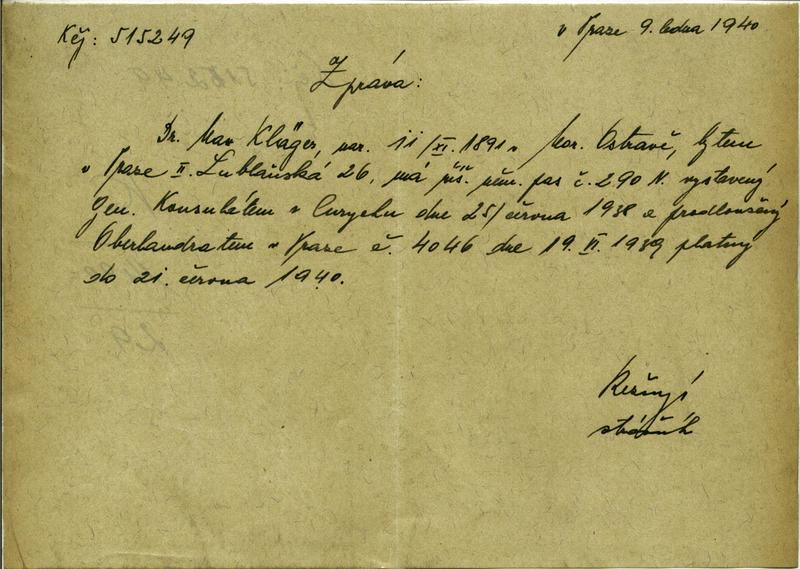 Kčj: 515249
v Praze 9. ledna 1940
Zpráva:
Dr. Max Kläger, nar. 11/XI. 1891 v Mor. Ostravě, bytem
v Praze II. Lublaňská 26, má říš. něm. pas č. 290 N. vystavený
Gen. Konsulátem v Curychu dne 25/června 1938 a prodloužený
Oberlandratem v Praze č. 4046 dne 19. VI. 1939 platný
do 21. června 1940.
strážník